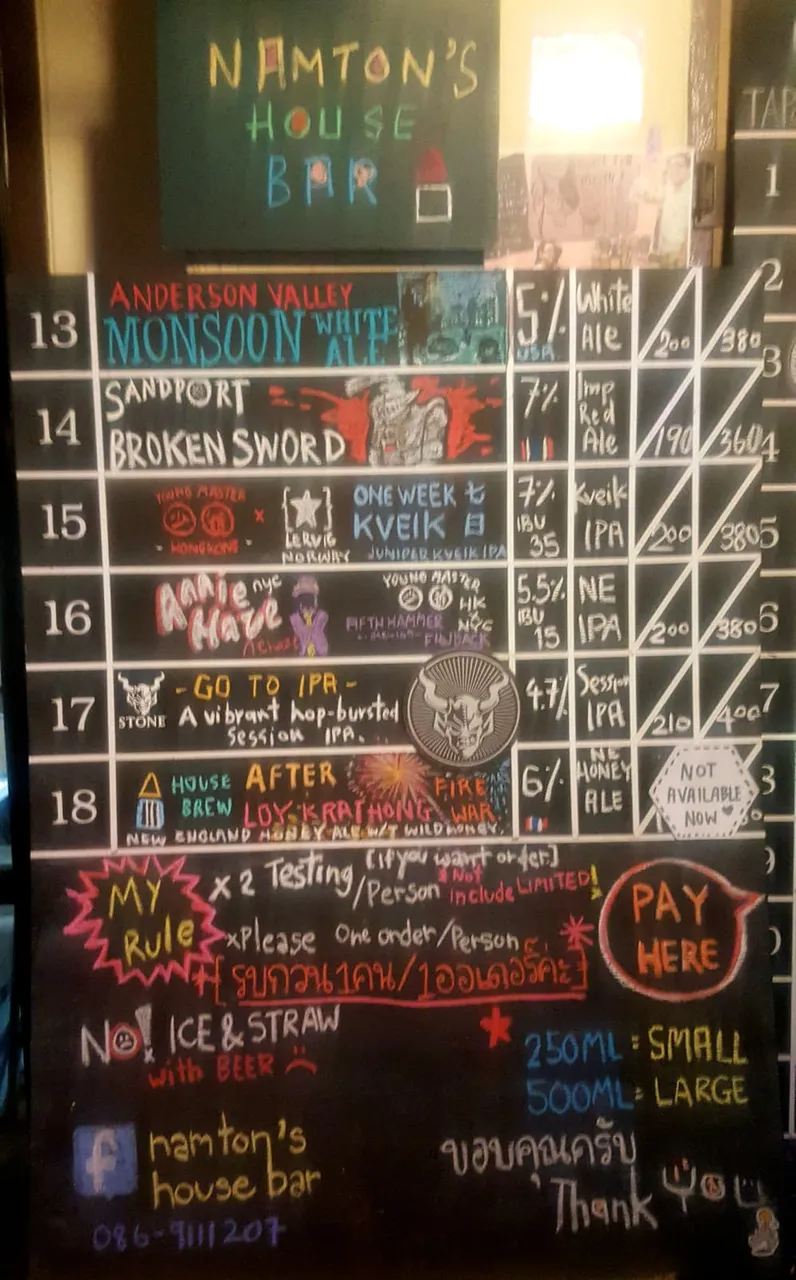 NAMTON'S
HOUSE
BAR
TAP
1
2
3
4
5
6
7
13 ANDERSON VALLEY
MONSOON WHITE ALE
5% USA White Ale 200 380
14 SANDPORT
BROKEN SWORD
7% Imp Red Ale 190 360
15 YOUNG MASTER
- HONG KONG -
x
LERVIG
NORWAY
ONE WEEK 七
KVEIK 日
JUNIPER KVEIK IPA
7% IBU 35 Kveik IPA 200 380
16 Annie nyc
Haze
YOUNG MASTER
HK
NYC
FIFTH HAMMER
FINBACK
5.5% IBU 15 NE IPA 200 380
17 STONE
- GO TO IPA -
A vibrant hop-bursted
Session IPA.
4.7% Session IPA 210 400
18 HOUSE BREW
AFTER
LOY KRATHONG
FIRE WAR
NEW ENGLAND HONEY ALE W/T WILD HONEY.
6% NE HONEY ALE
NOT
AVAILABLE
NOW
MY
Rule
x 2 Testing/Person [if you want order.]
* Not include LIMITED!
xPlease One order/Person
*[รบกวน1คน/1ออเดอร์ค่ะ]
PAY
HERE
NO! ICE & STRAW
with BEER
250ML = SMALL
500ML = LARGE
f namton's
house bar
086-9111207
ขอบคุณครับ
Thank You